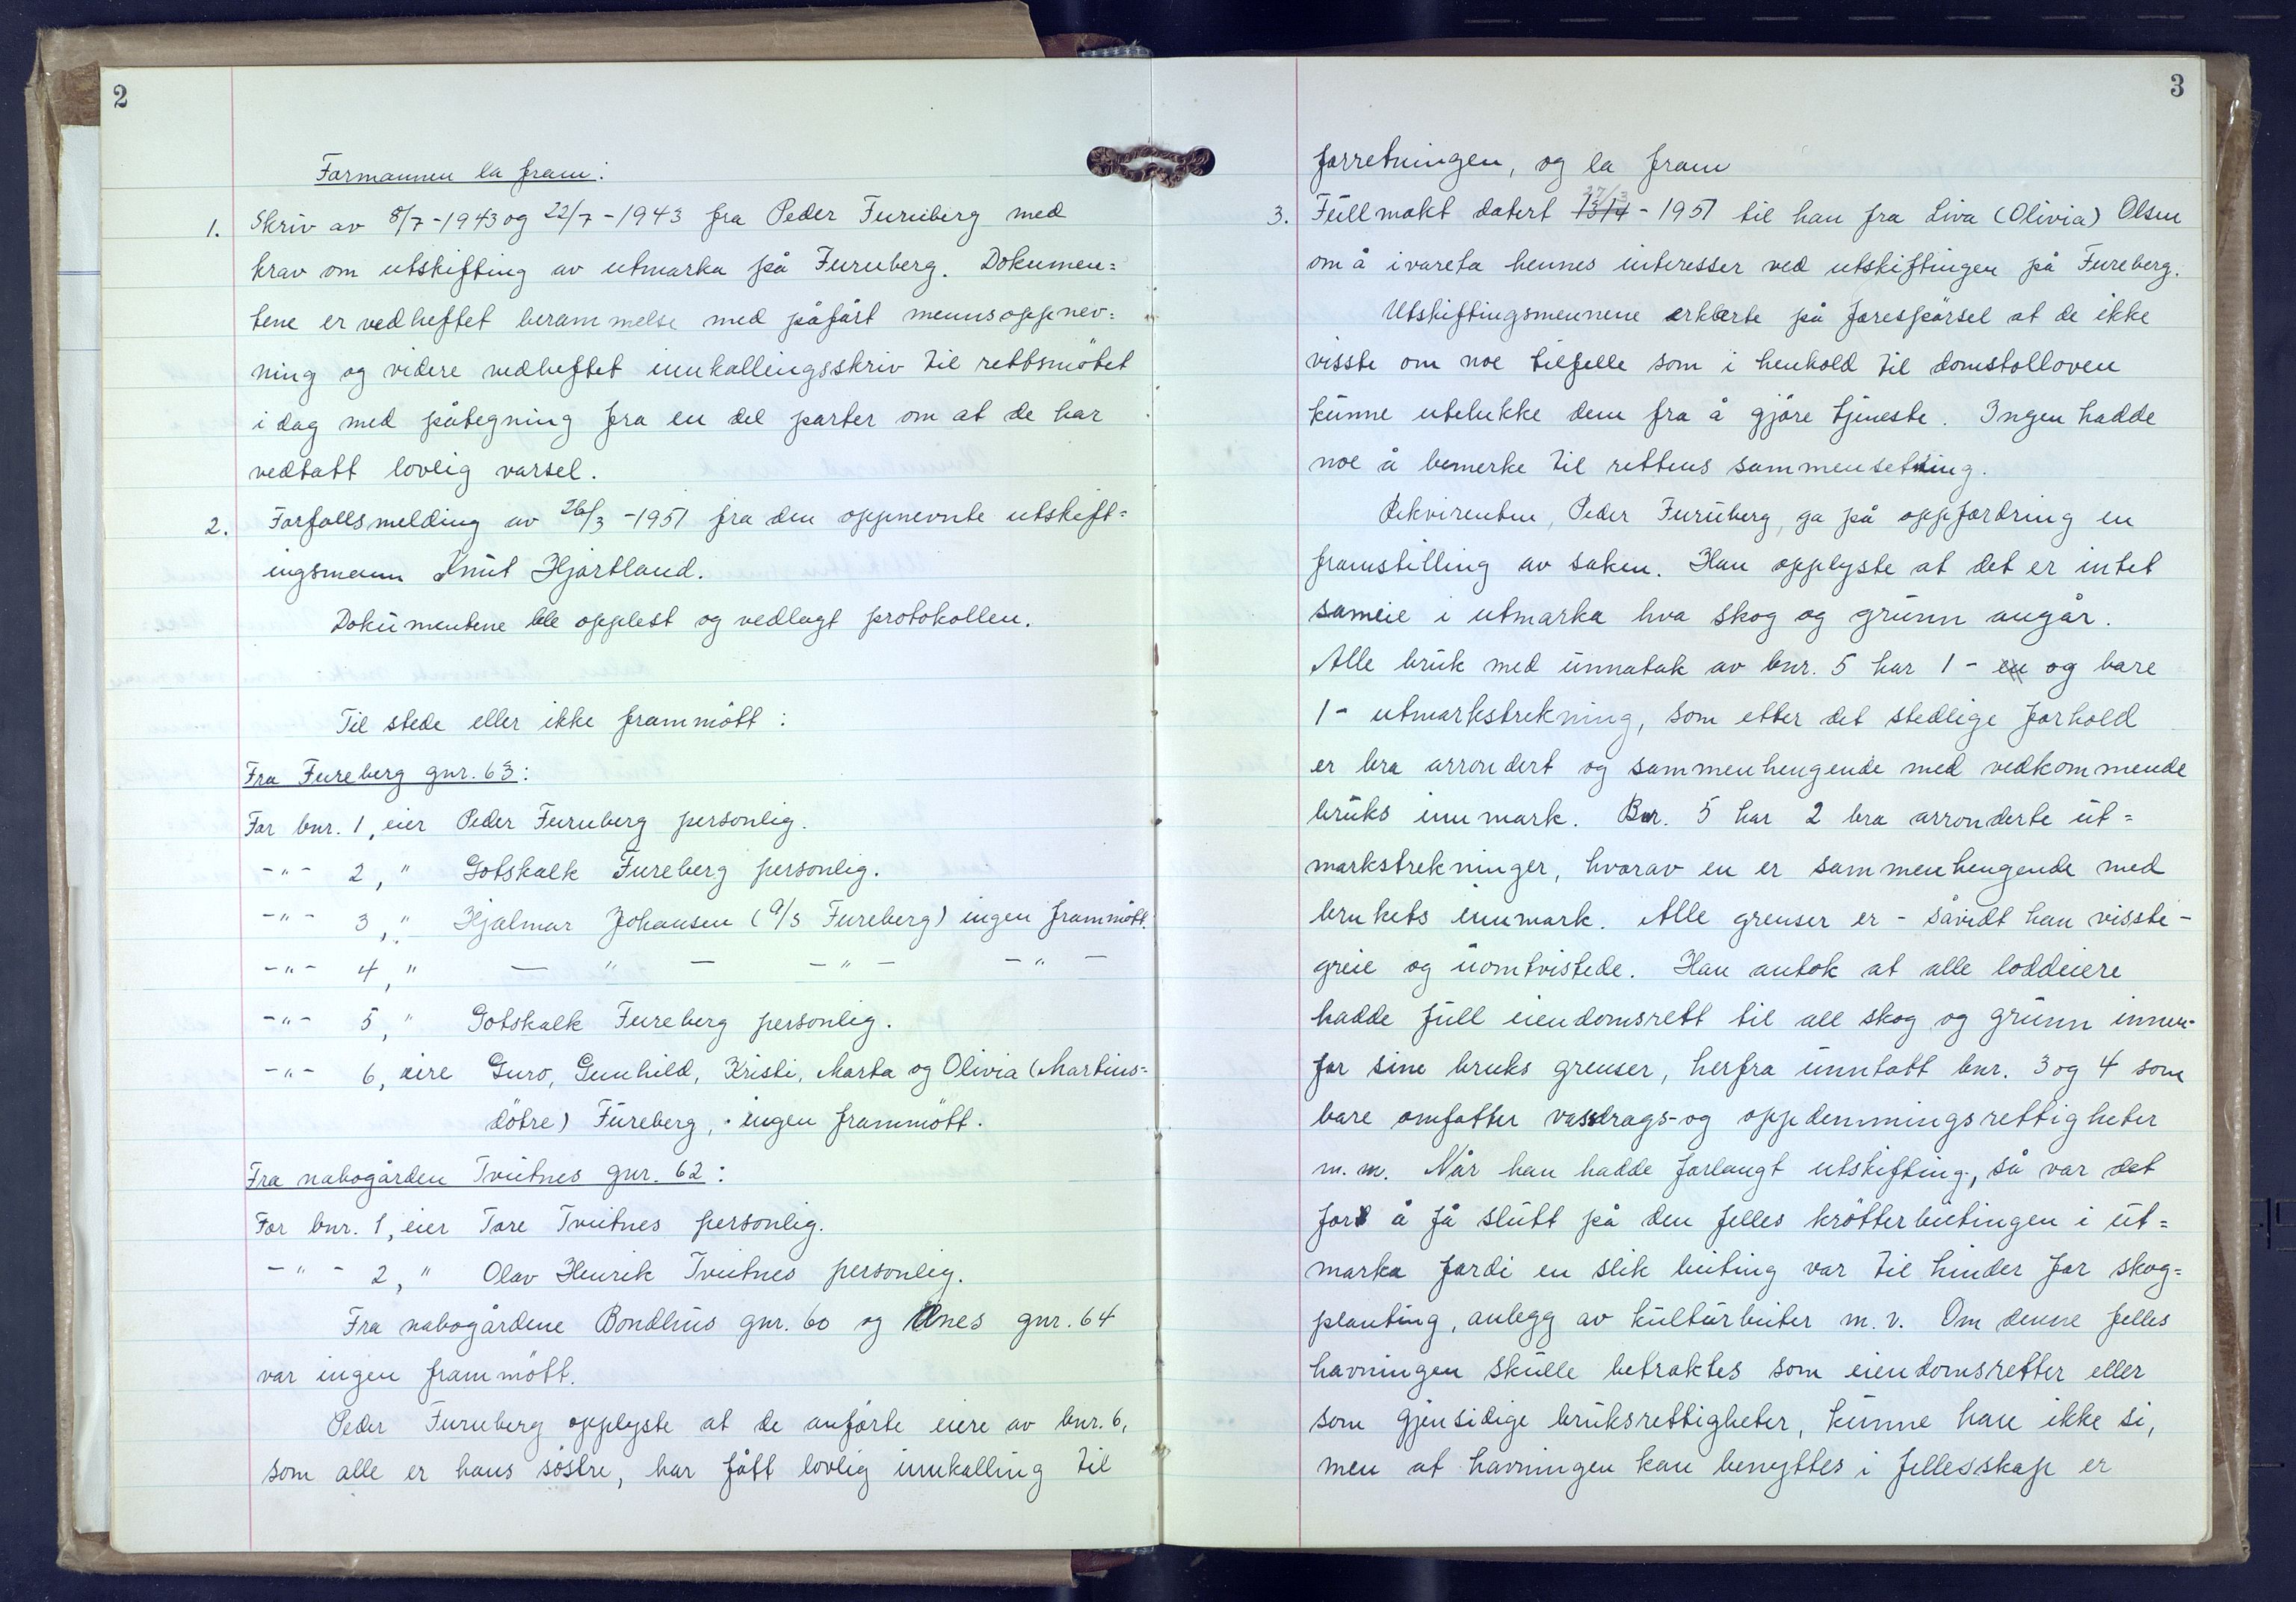 2
Formannen la fram:
1. Skriv av 8/7-1943 og 22/7-1943 fra Peder Furuberg med
krav om utskifting av utmarka på Furuberg. Dokumen=
tene er vedheftet berammelse med påført mennsoppnev=
ning og videre vedheftet innkallingsskriv til rettsmötet
i dag med påtegning fra en del parter om at de har
vedtatt lovlig varsel.
2. Forfallsmelding av 26/3-1951 fra den oppnevnte utskift=
ingsmann Knut Hjartland.
Dokumentene ble opplest og vedlagt protokollen.
Til stede eller ikke frammött:
Fra Fureberg gnr. 63:
For bnr. 1, eier Peder Furuberg personlig.
-"- 2, " Gotskalk Fureberg personlig.
-"- 3, " Hjalmar Johansen (A/S Fureberg) ingen frammött.
-"- 4, " — " — -"- -"-
-"- 5, " Gotskalk Fureberg personlig.
-"- 6, eire Guro, Gunhild, Kristi, Marta og Olivia (Martins=
dötre) Fureberg, ingen frammött.
Fra nabogården Tvitnes gnr. 62:
For bnr. 1, eier Tore Tveitnes personlig.
-"- 2, " Olav Henrik Tveitnes personlig.
Fra nabogårdene Bondhus gnr. 60 og Ænes gnr. 64
var ingen frammött.
Peder Furuberg opplyste at de anförte eiere av bnr. 6,
som alle er hans söstre, har fått lovlig innkalling til
3
forretningen, og la fram
3. Fullmakt datert 13/4 27/3 - 1951 til han fra Liva (Olivia) Olsen
om å ivareta hennes interesser ved utskiftingen på Fureberg.
Utskiftingsmennene erklærte på forespörsel at de ikke
visste om noe tilfelle som i henhold til domstolloven
kunne utelukke dem fra å gjöre tjeneste. Ingen hadde
noe å bemerke til rettens sammensetning.
Rekvirenten, Peder Furuberg, ga på oppfordring en
framstilling av saken. Han opplyste at det er intet
sameie i utmarka hva skog og grunn angår.
Alle bruk med unnatak av bnr. 5 har 1 - en og bare
1 - utmarkstrekning, som etter det stedlige forhold
er bra arrondert og sammenhengende med vedkommende
bruks innmark. Bnr. 5 har 2 bra arronderte ut=
markstrekninger, hvorav en er sammenhengende med
brukets innmark. Alle grenser er - såvidt han visste -
greie og uomtvistede. Han antok at alle loddeiere
hadde full eiendomsrett til all skog og grunn innen-
for sine bruks grenser, herfra unntatt bnr. 3 og 4 som
bare omfatter vassdrags- og oppdemmingsrettigheter
m. m. Når han hadde forlangt utskifting, så var det
for å få slutt på den felles krötterbeitingen i ut=
marka fordi en slik beiting var til hinder for skog=
planting, anlegg av kulturbeiter m. v. Om denne felles
havningen skulle betraktes som eiendomsretter eller
som gjensidige bruksrettigheter, kunne han ikke si,
men at havningen kan benyttes i fellesskap er